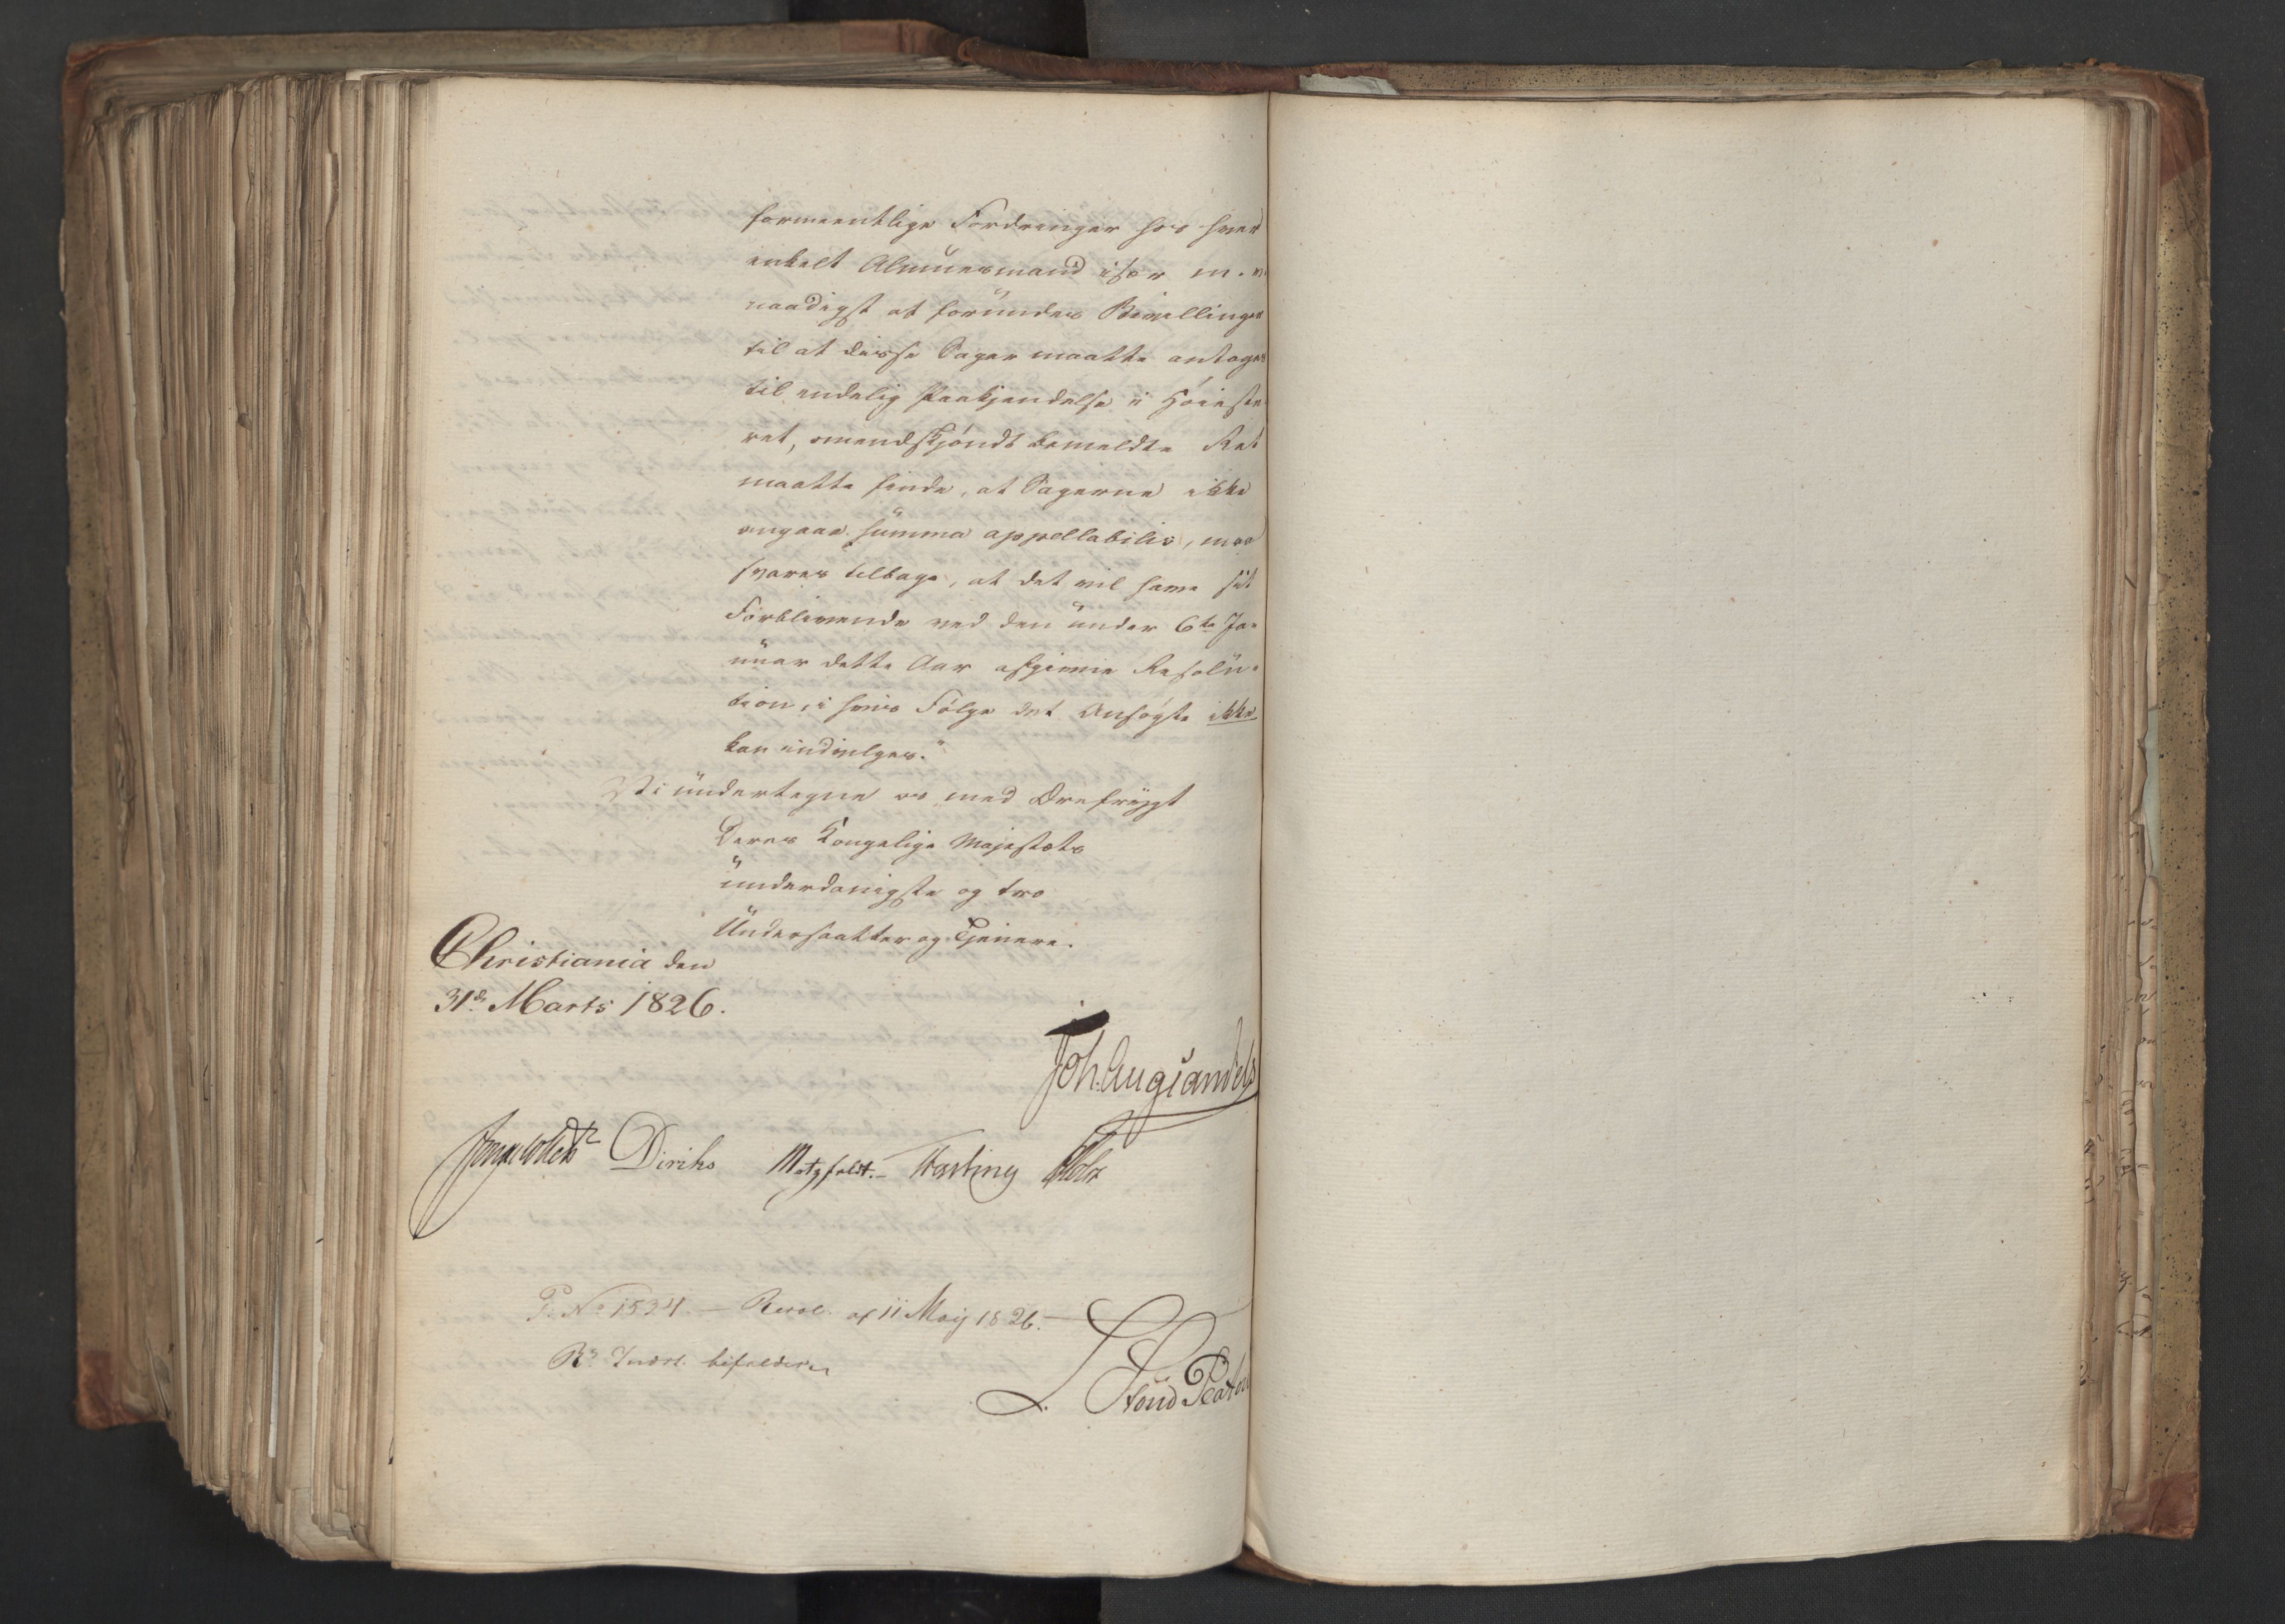 formeentlige Fordringer hos hver
enkelt Almuesmand især m. v.
naadigst at forundes Bevillinger
til at disse Sager maatte antages
til endelig Paakjendelse i Høieste
ret, omendskjøndt bemeldte Ret
maatte finde, at Sagerne ikke
angaae summa appellabilis, maa
svares tilbage, at det vil have sit
Forblivende ved den under 6te Ja-
nuar dette Aar afgivne Resolu-
tion, i hvis Følge det Ansøgte ikke
kan indvilges."
Vi undertegne os med Ærefrygt
Deres Kongelige Majestæts
underdanigste og troe
Undersaatter og Tjenere.
Christiania den
31de Marts 1826.
Joh. Aug Sandels
Diriks Motzfeldt. Fasting Holst
P. No 1524. — Resol. af 11 May 1826.